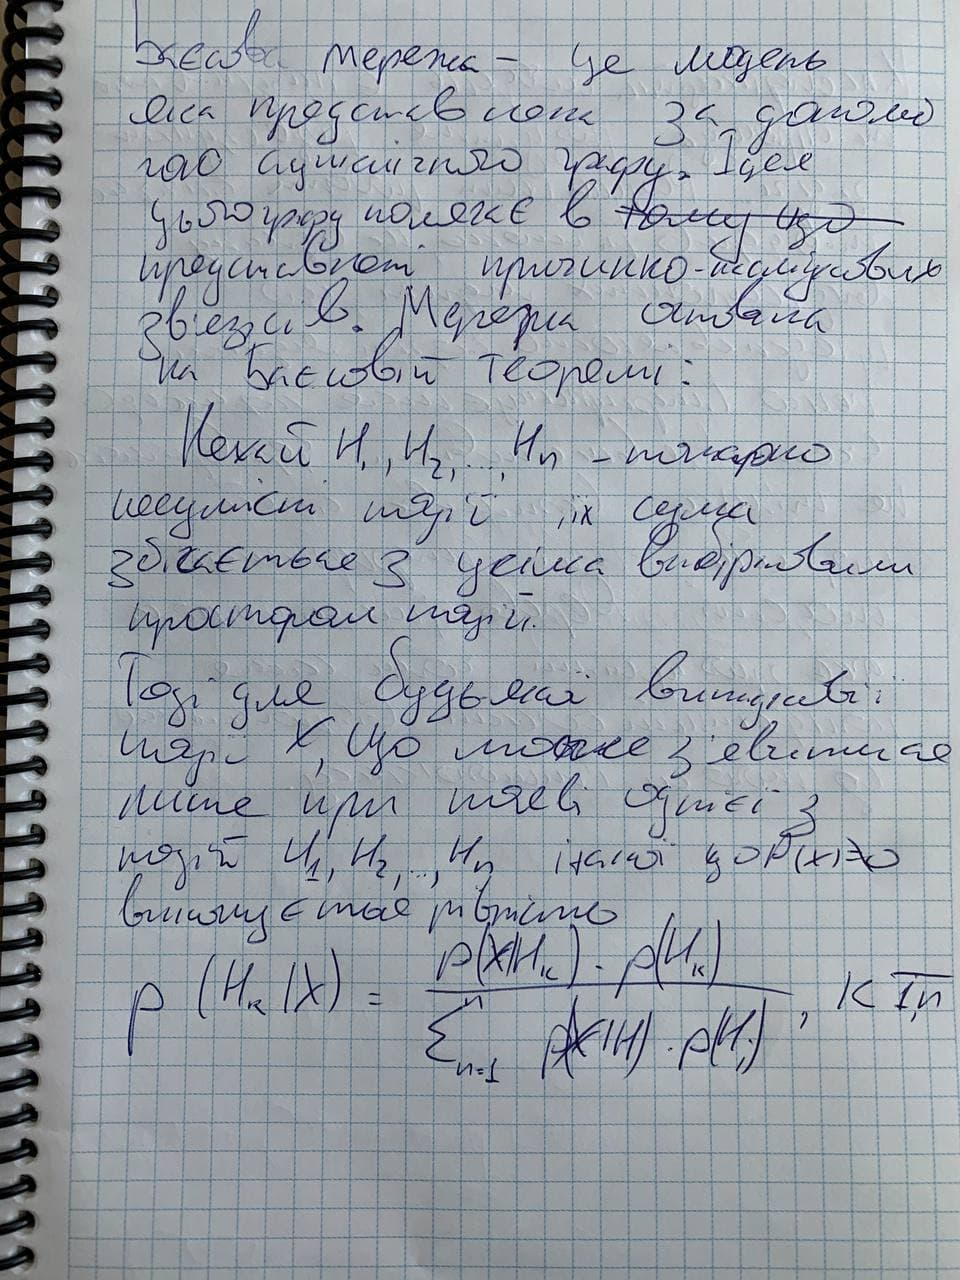 Баєсова мережа - це модель
яка представлена за допомо
гою ациклічного графу. Ідея
цього графу полягає в тому що
представленні причинко-наслідкових
зв'язків. Мережа основана
на Баєсовій теоремі:
Нехай H₁, H₂, ..., Hn - попарно
несумісні події, їх сума
збігається з усіма вибірковими
простором подій.
Тоді для будь якої випадкової
події X, що може з'явитися
лише при появі однієї з
подій H₁, H₂, ..., Hn і такої що P(X)≠0
виконується рівність
p(Hк|X) = p(X|Hк) · p(Hк) / Σⁿₙ₌₁ p(X|H) · p(Hᵢ), к 1,n